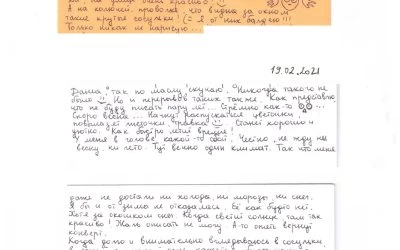 на улице очень красиво
А на колючей проволке, что видна за окном
такие крутые сосульки! (= Я от них балдею!!!
Только никак не нарисую...
19.02.2021
Даша, так по маслу скучаю. Никогда такого не
было. Но и перерывов таких также. Как представлю
что не буду писать пару лет. Стрёмно как-то
Скоро весна... Начнут распускаться цветочки,
появится листочки, травка. Станет хорошо и
уютно. Как быстро летит время!
У меня в голове какой-то сбой. Честно, не жду ни
весну, ни лето. Тут вечно один климат. Так что меня
даже не достали ни холода, ни морозы, ни снег.
Я бы и от зимы не отказалась. Её как будто нет.
Хотя за окошком снег. Когда светит солнце, там так
красиво! Жаль описать не могу. А то опять вернут
конверт.
Когда долго и внимательно вглядываюсь в сосульки,